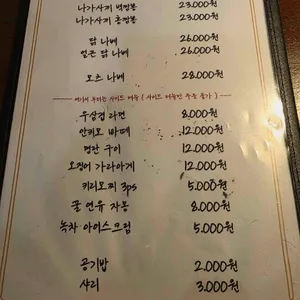 나가사끼 백짬뽕 23.000원
나가사끼 홍짬뽕 23.000원
닭 나베 26.000원
얼큰 닭 나베 26.000원
모츠 나베 28.000원
여기서 부터는 사이드 메뉴 ( 사이드 메뉴만 주문 불가 )
우삼겹 라면 8.000원
안키모 빠떼 12.000원
명란 구이 12.000원
오징어 가라아게 12.000원
키리모찌 3ps 5.000원
꿀 연유 자몽 8.000원
녹차 아이스크림 5.000원
공기밥 2.000원
사리 3.000원